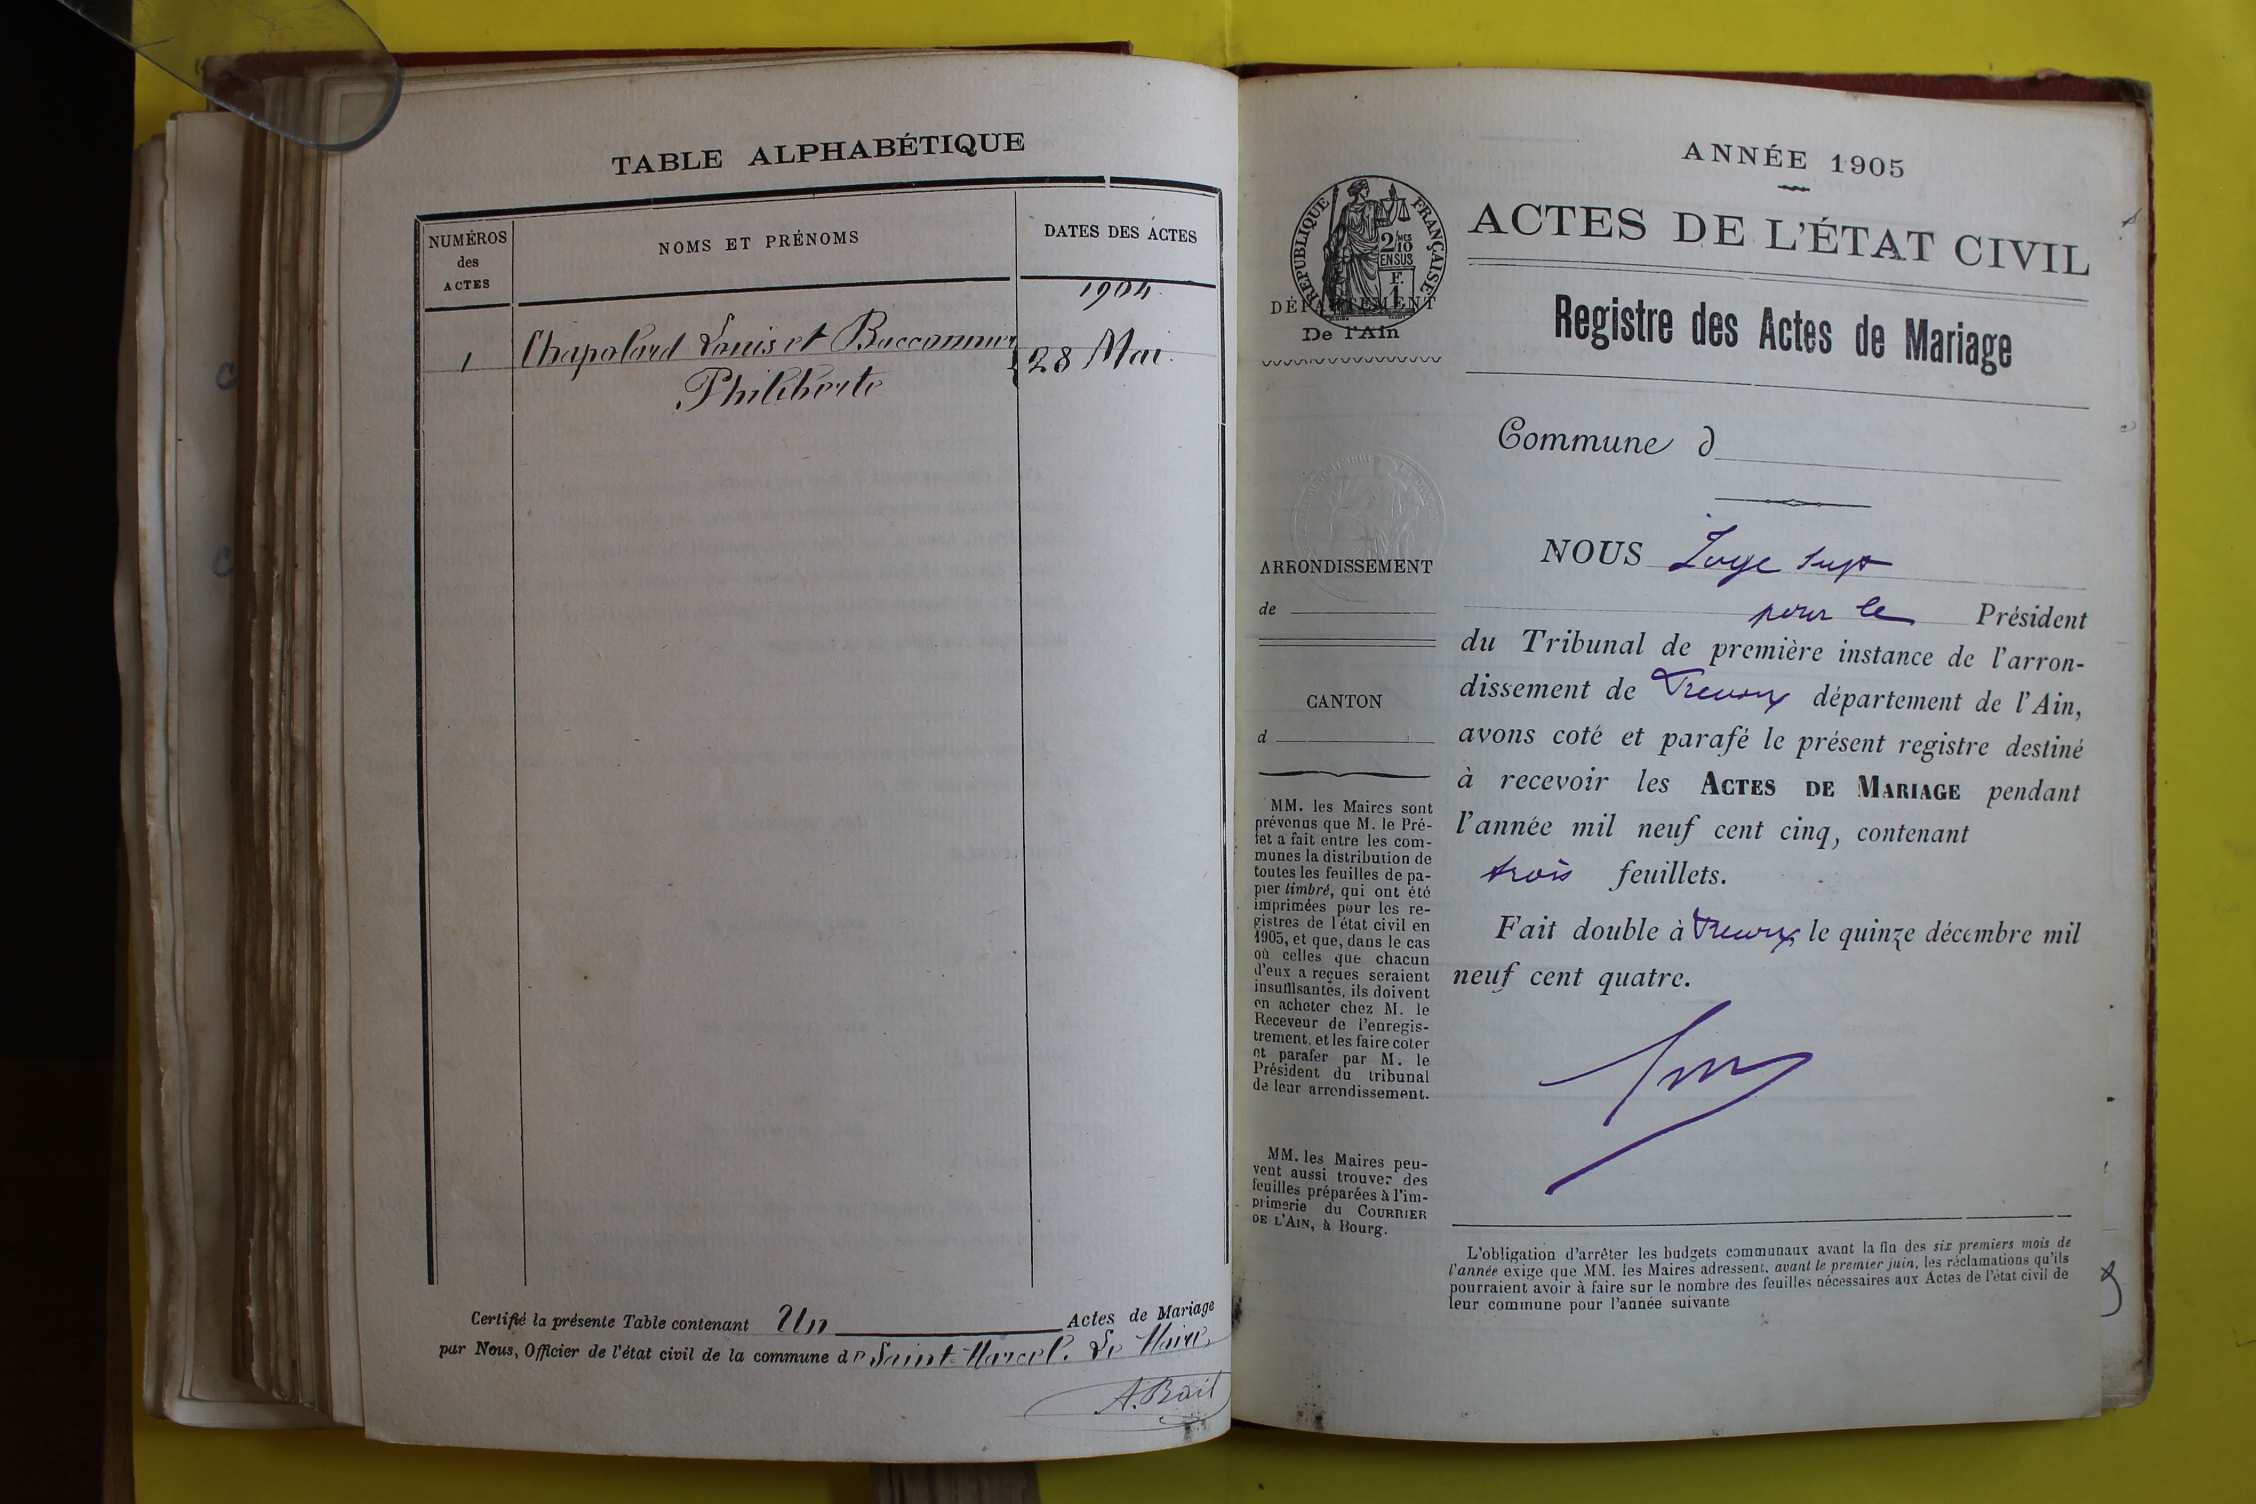 TABLE ALPHABÉTIQUE
NUMÉROS
des
ACTES
NOMS ET PRÉNOMS
DATES DES ACTES
1904
1 Chapolard Louis et Bacconnier 28 Mai
Philiberte
Certifié la présente Table contenant Un Actes de Mariage
par Nous, Officier de l'état civil de la commune de Saint-Marcel. Le Maire
A. Bail
ANNÉE 1905
ACTES DE L'ÉTAT CIVIL
RÉPUBLIQUE FRANÇAISE
2/10
EN SUS
F.
1
DÉPARTEMENT
De l'Ain
Registre des Actes de Mariage
Commune d
NOUS Juge supt
pour le Président
du Tribunal de première instance de l'arron-
dissement de Trévoux département de l'Ain,
avons coté et parafé le présent registre destiné
à recevoir les ACTES DE MARIAGE pendant
l'année mil neuf cent cinq, contenant
trois feuillets.
Fait double à Trévoux le quinze décembre mil
neuf cent quatre.
ARRONDISSEMENT
de
CANTON
d
MM. les Maires sont
prévenus que M. le Pré-
fet a fait entre les com-
munes la distribution de
toutes les feuilles de pa-
pier timbré, qui ont été
imprimées pour les re-
gistres de l'état civil en
1905, et que, dans le cas
où celles que chacun
d'eux a reçues seraient
insuffisantes, ils doivent
en acheter chez M. le
Receveur de l'enregis-
trement, et les faire coter
et parafer par M. le
Président du tribunal
de leur arrondissement.
MM. les Maires peu-
vent aussi trouver des
feuilles préparées à l'im-
primerie du COURRIER
DE L'AIN, à Bourg.
L'obligation d'arrêter les budgets communaux avant la fin des six premiers mois de
l'année exige que MM. les Maires adressent, avant le premier juin, les réclamations qu'ils
pourraient avoir à faire sur le nombre des feuilles nécessaires aux Actes de l'état civil de
leur commune pour l'année suivante